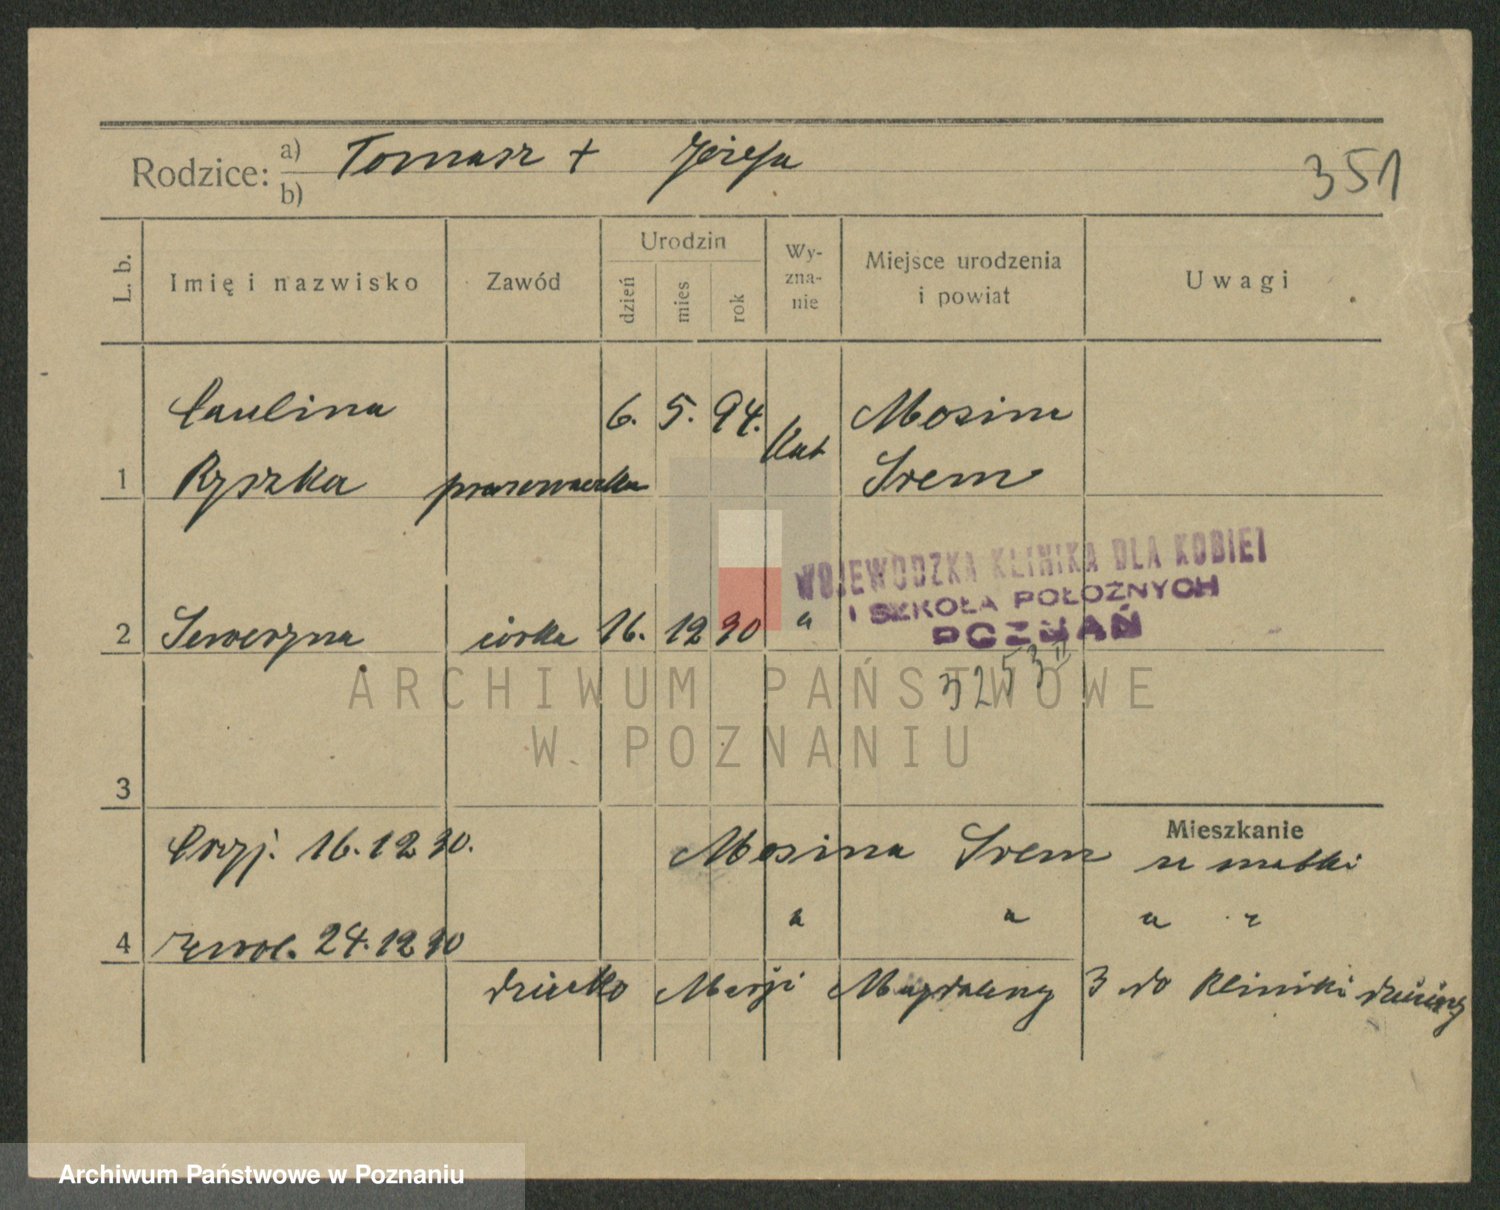 Rodzice: a) Tomasz + Józefa
b)
351
L. b.
Imię i nazwisko
Zawód
Urodzin
dzień
mies
rok
Wy-
zna-
nie
Miejsce urodzenia
i powiat
Uwagi
Paulina 6. 5. 94. Kat Mosina
1 Ryszka prasowaczka Śrem
WOJEWODZKA KLINIKA DLA KOBIET
I SZKOŁA POŁOŻNYCH
POZNAŃ
2 Seweryna córka 16. 12 30 "
3253
ARCHIWUM PAŃSTWOWE
W POZNANIU
3
Mieszkanie
Przyj. 16.12 30. Mosina Śrem u matki
4 zwol. 24.12 30 " " " "
dziecko Marji Magdaleny 3 do Kliniki
Archiwum Państwowe w Poznaniu